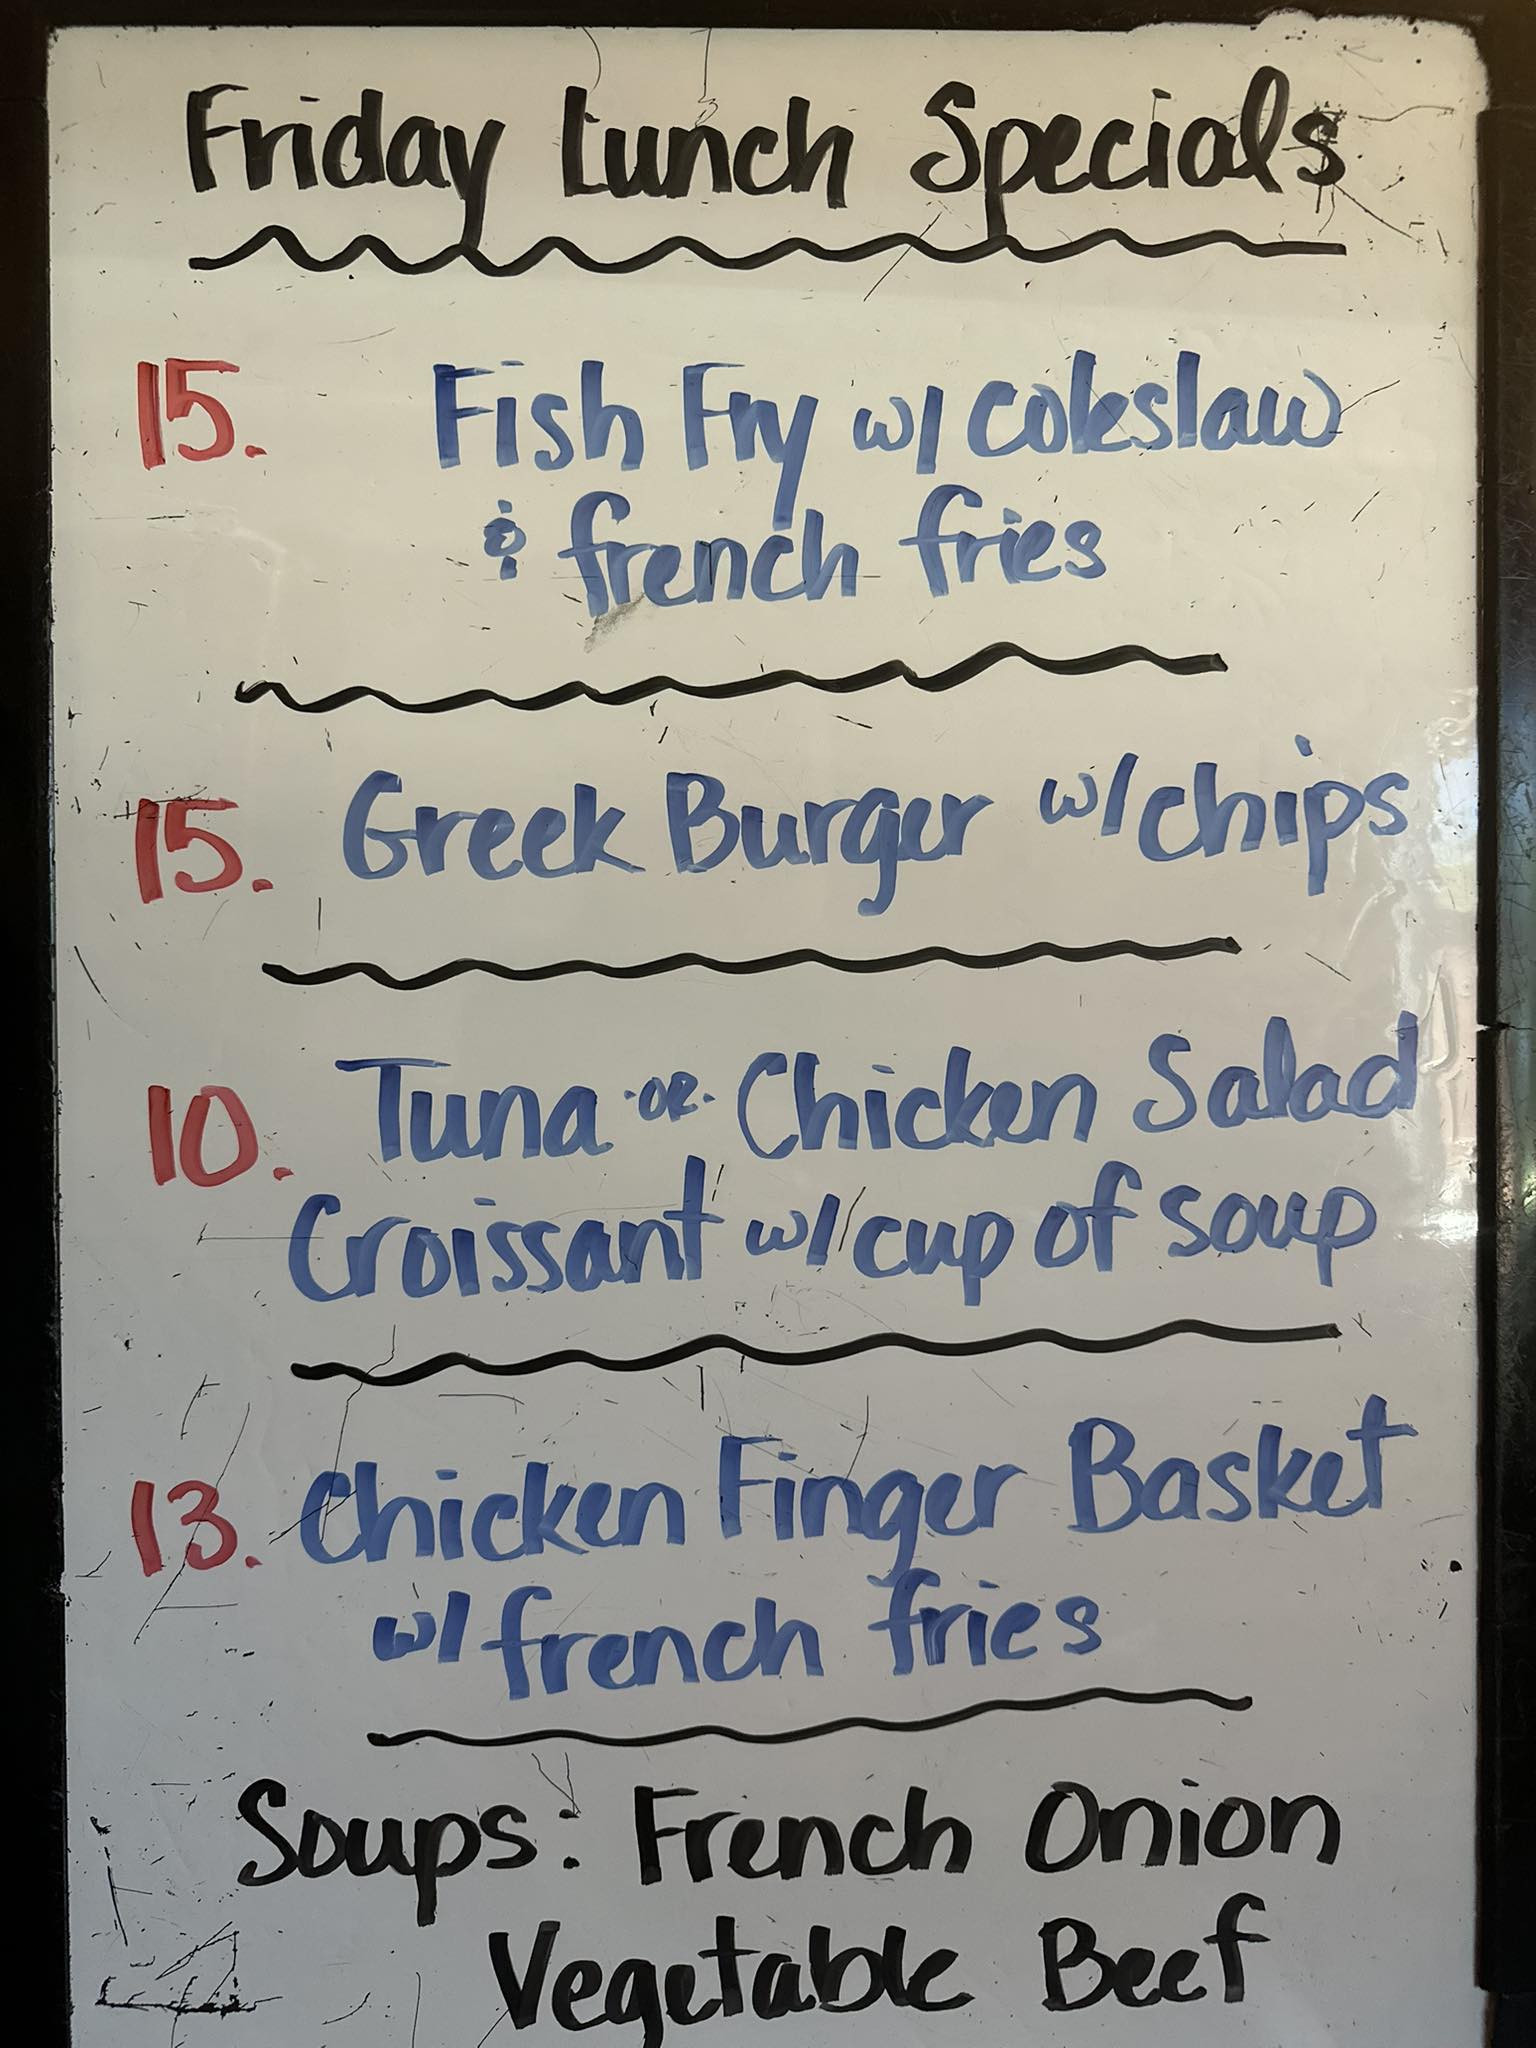 Friday Lunch Specials
15. Fish Fry w/ coleslaw
& french fries
15. Greek Burger w/ chips
10. Tuna -OR- Chicken Salad
Croissant w/ cup of soup
13. Chicken Finger Basket
w/ french fries
Soups: French Onion
Vegetable Beef